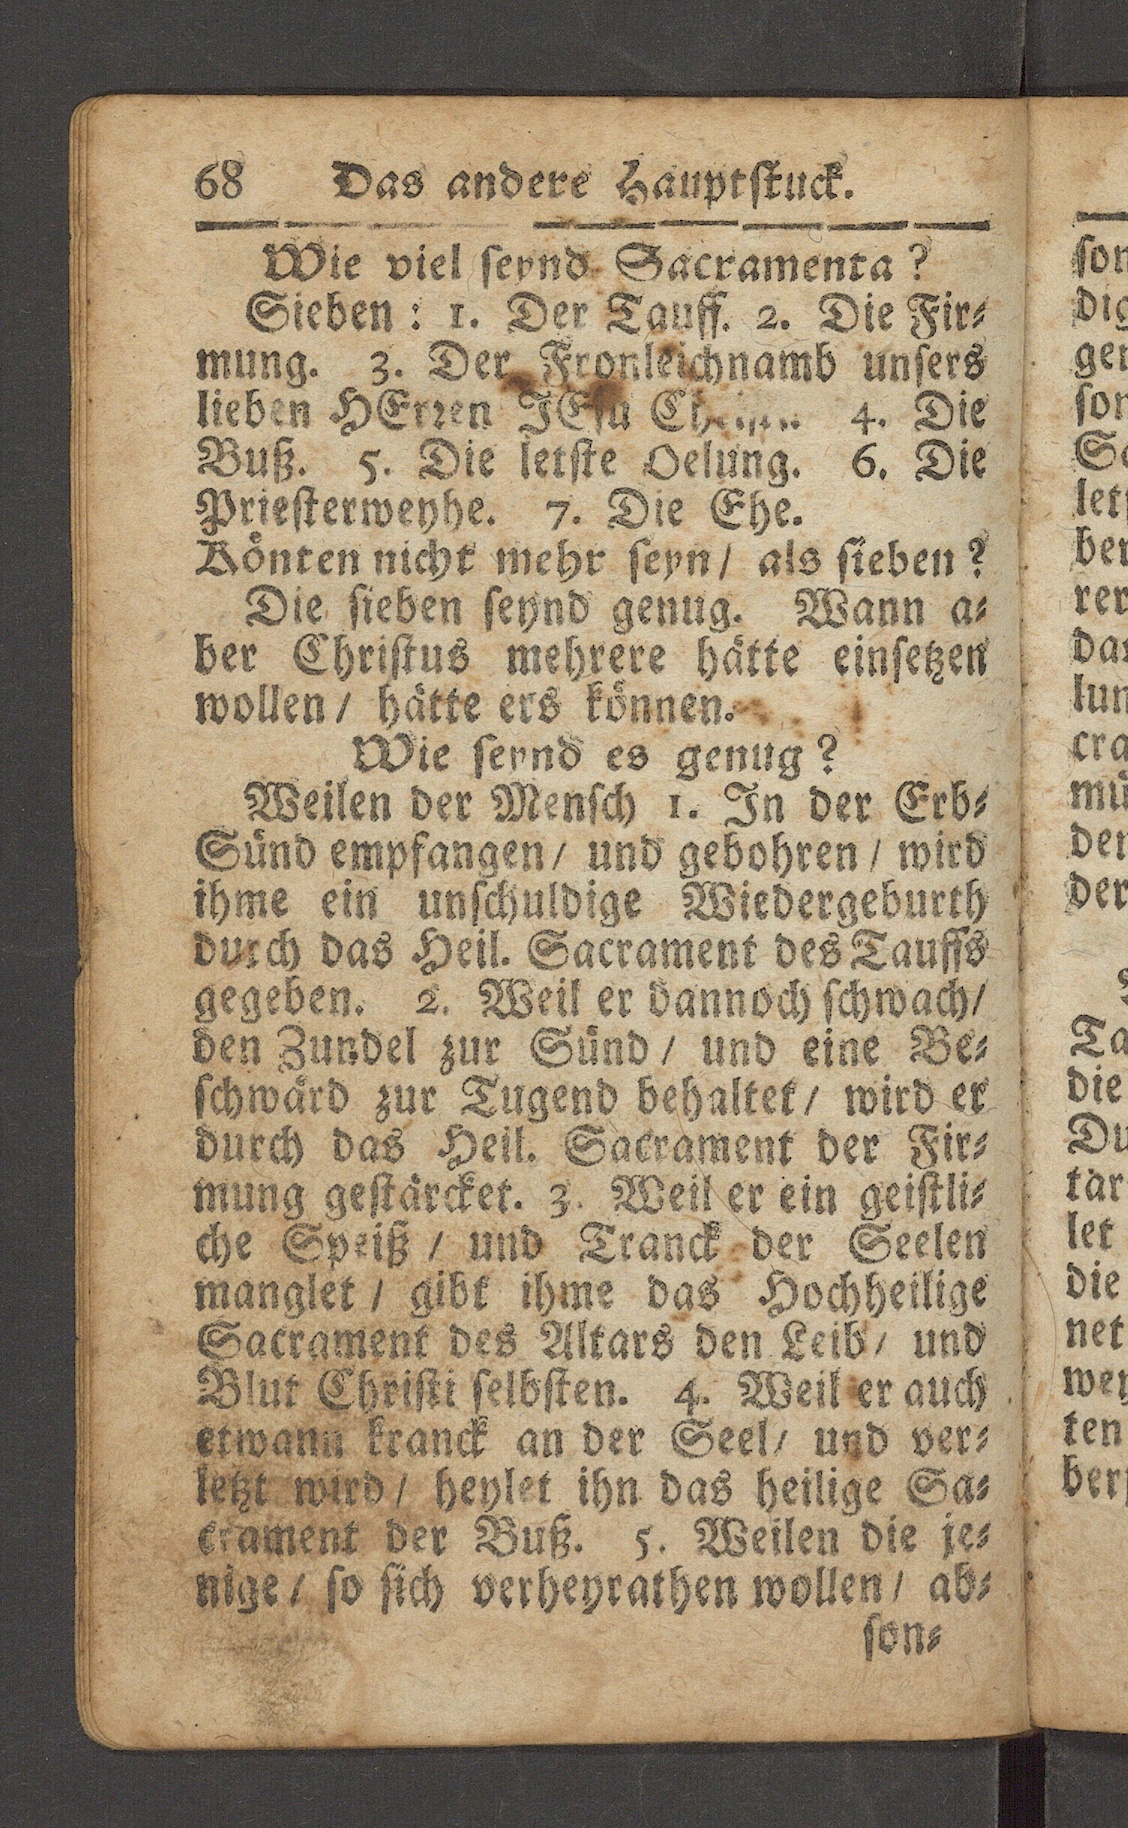 68 Das andere Hauptstuck.
Wie viel seynd Sacramenta?
Sieben: 1. Der Tauff. 2. Die Fir-
mung. 3. Der Fronleichnamb unsers
lieben HErren JEsu 4. Die
Buß. 5. Die letste Oelung. 6. Die
Priesterweyhe. 7. Die Ehe.
Könten nicht mehr seyn/ als sieben?
Die sieben seynd genug. Wann a-
ber Christus mehrere hätte einsetzen
wollen/ hätte ers können.
Wie seynd es genug?
Weilen der Mensch 1. In der Erb-
Sünd empfangen/ und gebohren/ wird
ihme ein unschuldige Wiedergeburth
durch das Heil. Sacrament des Tauffs
gegeben. 2. Weil er dannoch schwach/
den Zundel zur Sünd/ und eine Be-
schwärd zur Tugend behaltet/ wird er
durch das Heil. Sacrament der Fir-
mung gestärcket. 3. Weil er ein geistli-
che Speiß/ und Tranck der Seelen
manglet/ gibt ihme das Hochheilige
Sacrament des Altars den Leib/ und
Blut Christi selbsten. 4. Weil er auch
etwann kranck an der Seel/ und ver-
letzt wird/ heylet ihn das heilige Sa-
crament der Buß. 5. Weilen die je-
nige/ so sich verheyrathen wollen/ ab-
son-